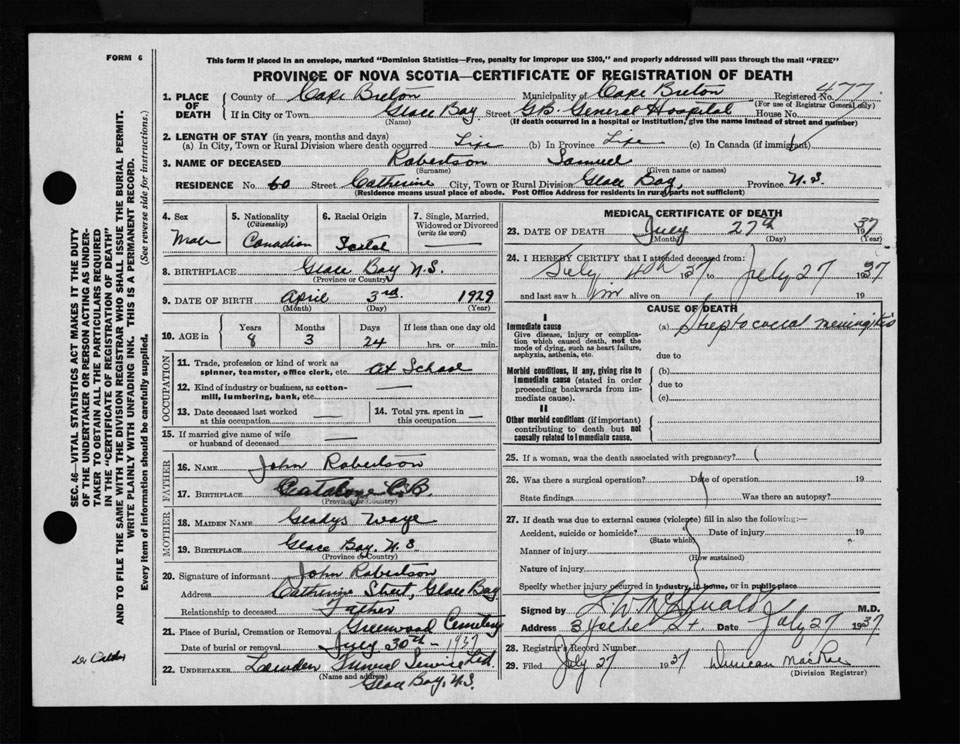 FORM 6
This form if placed in an envelope, marked "Dominion Statistics—Free, penalty for improper use $300," and properly addressed will pass through the mail "FREE"
PROVINCE OF NOVA SCOTIA—CERTIFICATE OF REGISTRATION OF DEATH
1. PLACE OF DEATH
County of Cape Breton Municipality of Cape Breton Registered No. 477
(For use of Registrar General only)
If in City or Town Glace Bay Street G.B. General Hospital House No.
(Name) (If death occurred in a hospital or institution, give the name instead of street and number)
2. LENGTH OF STAY (in years, months and days)
(a) In City, Town or Rural Division where death occurred Life (b) In Province Life (c) In Canada (if immigrant)
3. NAME OF DECEASED Robertson Samuel
(Surname) (Given name or names)
RESIDENCE No. 60 Street Catherine City, Town or Rural Division Glace Bay, Province N.S.
(Residence means usual place of abode. Post Office Address for residents in rural parts not sufficient)
4. Sex
Male
5. Nationality
(Citizenship)
Canadian
6. Racial Origin
7. Single, Married, Widowed or Divorced
(write the word)
—
8. BIRTHPLACE Glace Bay N.S.
(Province or Country)
9. DATE OF BIRTH April 3rd 1929
(Month) (Day) (Year)
10. AGE in
Years Months Days If less than one day old
8 3 24 hrs. or min.
OCCUPATION
11. Trade, profession or kind of work as spinner, teamster, office clerk, etc. at School
12. Kind of industry or business, as cotton-mill, lumbering, bank, etc. —
13. Date deceased last worked at this occupation —
14. Total yrs. spent in this occupation —
15. If married give name of wife or husband of deceased —
FATHER
16. NAME John Robertson
17. BIRTHPLACE C.B.
(Province or Country)
MOTHER
18. MAIDEN NAME Gladys Waye
19. BIRTHPLACE Glace Bay. N.S.
(Province or Country)
20. Signature of informant John Robertson
Address Catherine Street, Glace Bay
Relationship to deceased Father
21. Place of Burial, Cremation or Removal Greenwood Cemetery
Date of burial or removal July 30th 1937
22. UNDERTAKER Funeral Service Ltd.
(Name and address) Glace Bay, N.S.
MEDICAL CERTIFICATE OF DEATH
23. DATE OF DEATH July 27th 1937
(Month) (Day) (Year)
24. I HEREBY CERTIFY that I attended deceased from:
July 4th 1937 to July 27 1937
and last saw him alive on 19
CAUSE OF DEATH
I
Immediate cause
Give disease, injury or complication which caused death, not the mode of dying, such as heart failure, asphyxia, asthenia, etc.
(a) Streptococcal meningitis
due to
Morbid conditions, if any, giving rise to immediate cause (stated in order proceeding backwards from immediate cause).
(b)
due to
(c)
II
Other morbid conditions (if important) contributing to death but not causally related to immediate cause.
25. If a woman, was the death associated with pregnancy?
26. Was there a surgical operation? Date of operation 19
State findings Was there an autopsy?
27. If death was due to external causes (violence) fill in also the following:—
Accident, suicide or homicide? Date of injury 19
(State which)
Manner of injury
(How sustained)
Nature of injury
Specify whether injury occurred in industry, in home, or in public place
Signed by M.D.
Address Date July 27 1937
28. Registrar's Record Number
29. Filed July 27 1937 Duncan MacRae
(Division Registrar)
SEC. 46—VITAL STATISTICS ACT MAKES IT THE DUTY
OF THE UNDERTAKER OR PERSON ACTING AS UNDER-
TAKER TO OBTAIN ALL THE PARTICULARS REQUIRED
IN THE "CERTIFICATE OF REGISTRATION OF DEATH"
AND TO FILE THE SAME WITH THE DIVISION REGISTRAR WHO SHALL ISSUE THE BURIAL PERMIT.
WRITE PLAINLY WITH UNFADING INK. THIS IS A PERMANENT RECORD.
Every item of information should be carefully supplied. (See reverse side for instructions.)